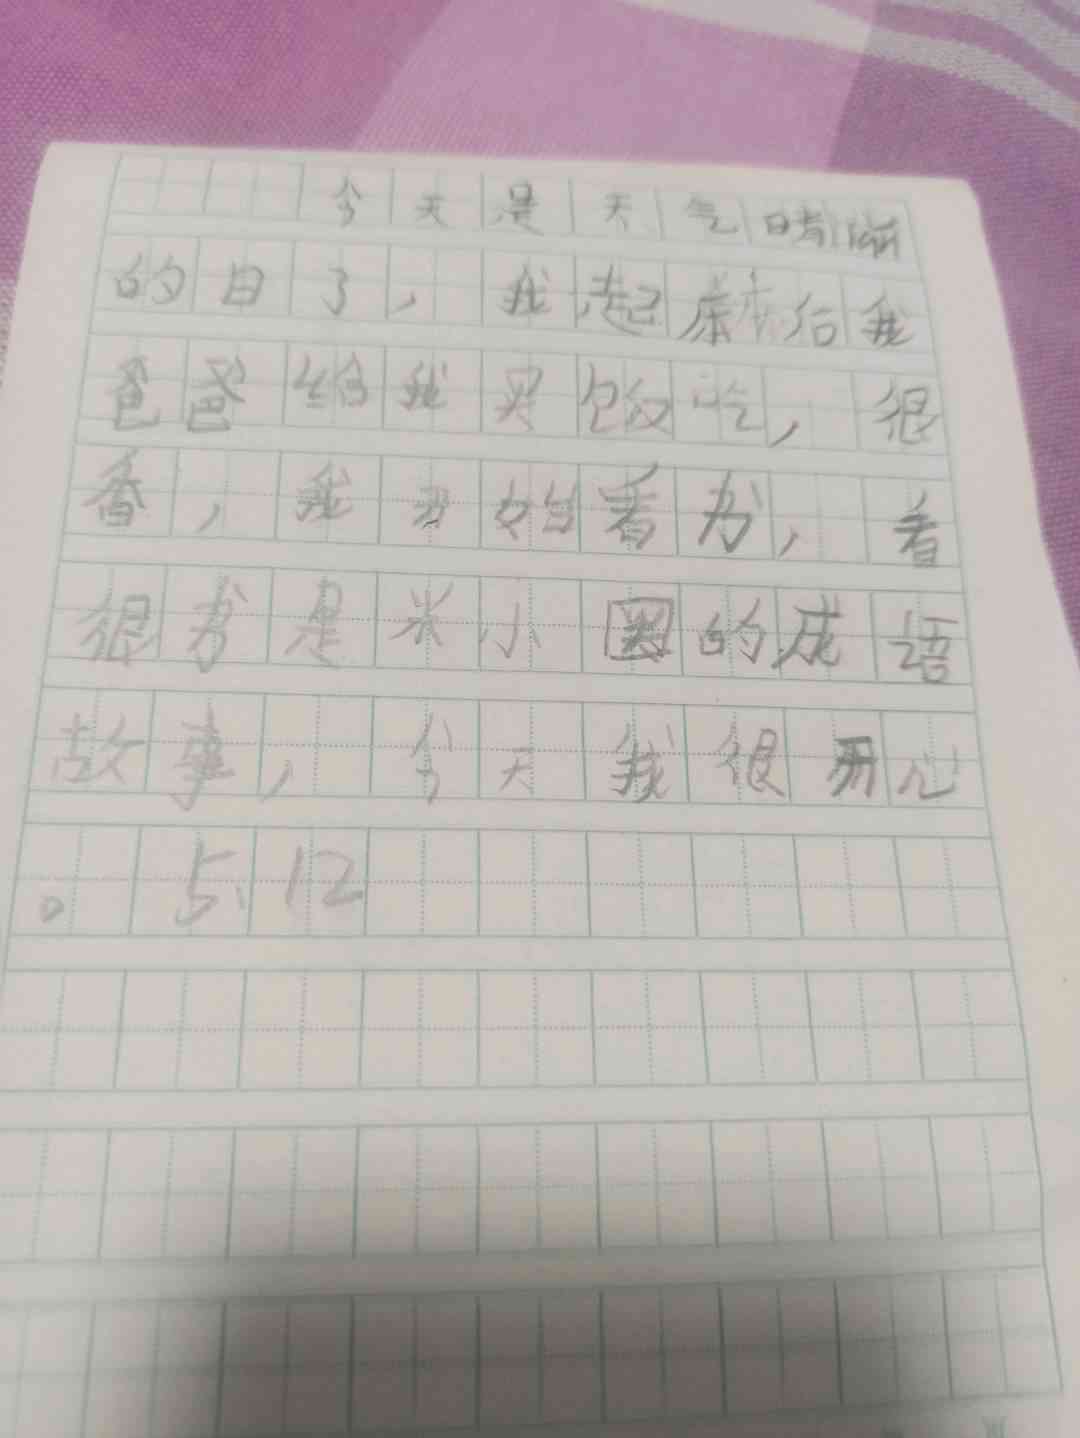 今天是天气晴
的日子,我起床后我
爸爸给我买饭吃,很
香,我开始看书,看
很书是米小圈的成语
故事,今天我很开心
。5、12